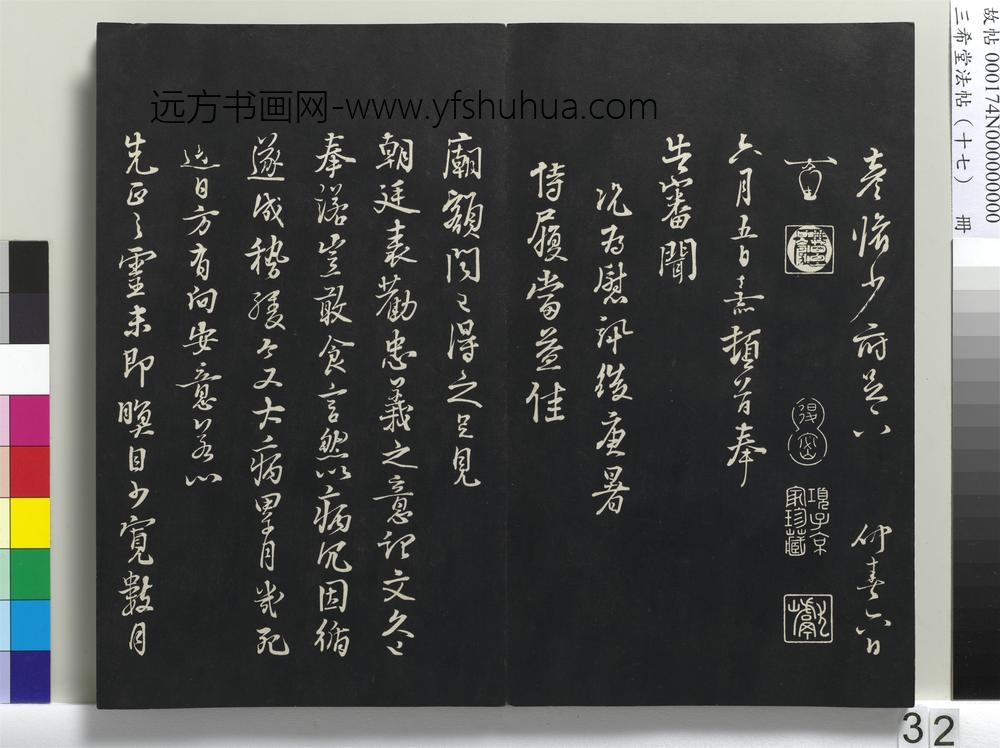 彦脩少府足下 仲春六日
項子京家珍藏
六月五日熹頓首奉
告審聞
況為慰訊後庚暑
侍履當益佳
廟額問已得之足見
朝廷表勸忠義之意記文久已
奉諾豈敢食言然以病冗因循
遂成稽緩今又大病累月幾死
近日方有向安意若以
先正之靈未即瞑目少寬數月
远方书画网-www.yfshuhua.com
故帖 000174N000000000
三希堂法帖(十七) 冊
32